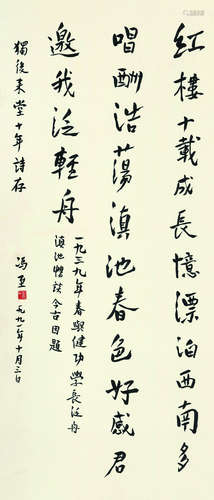 紅樓十載成長憶漂泊西南多
唱酬浩蕩滇池春色好感君
邀我泛輕舟
一九三九年春與健功學長泛舟
滇池體談今古因題
獨後來堂十年詩存
馮至
一九九一年十月三日